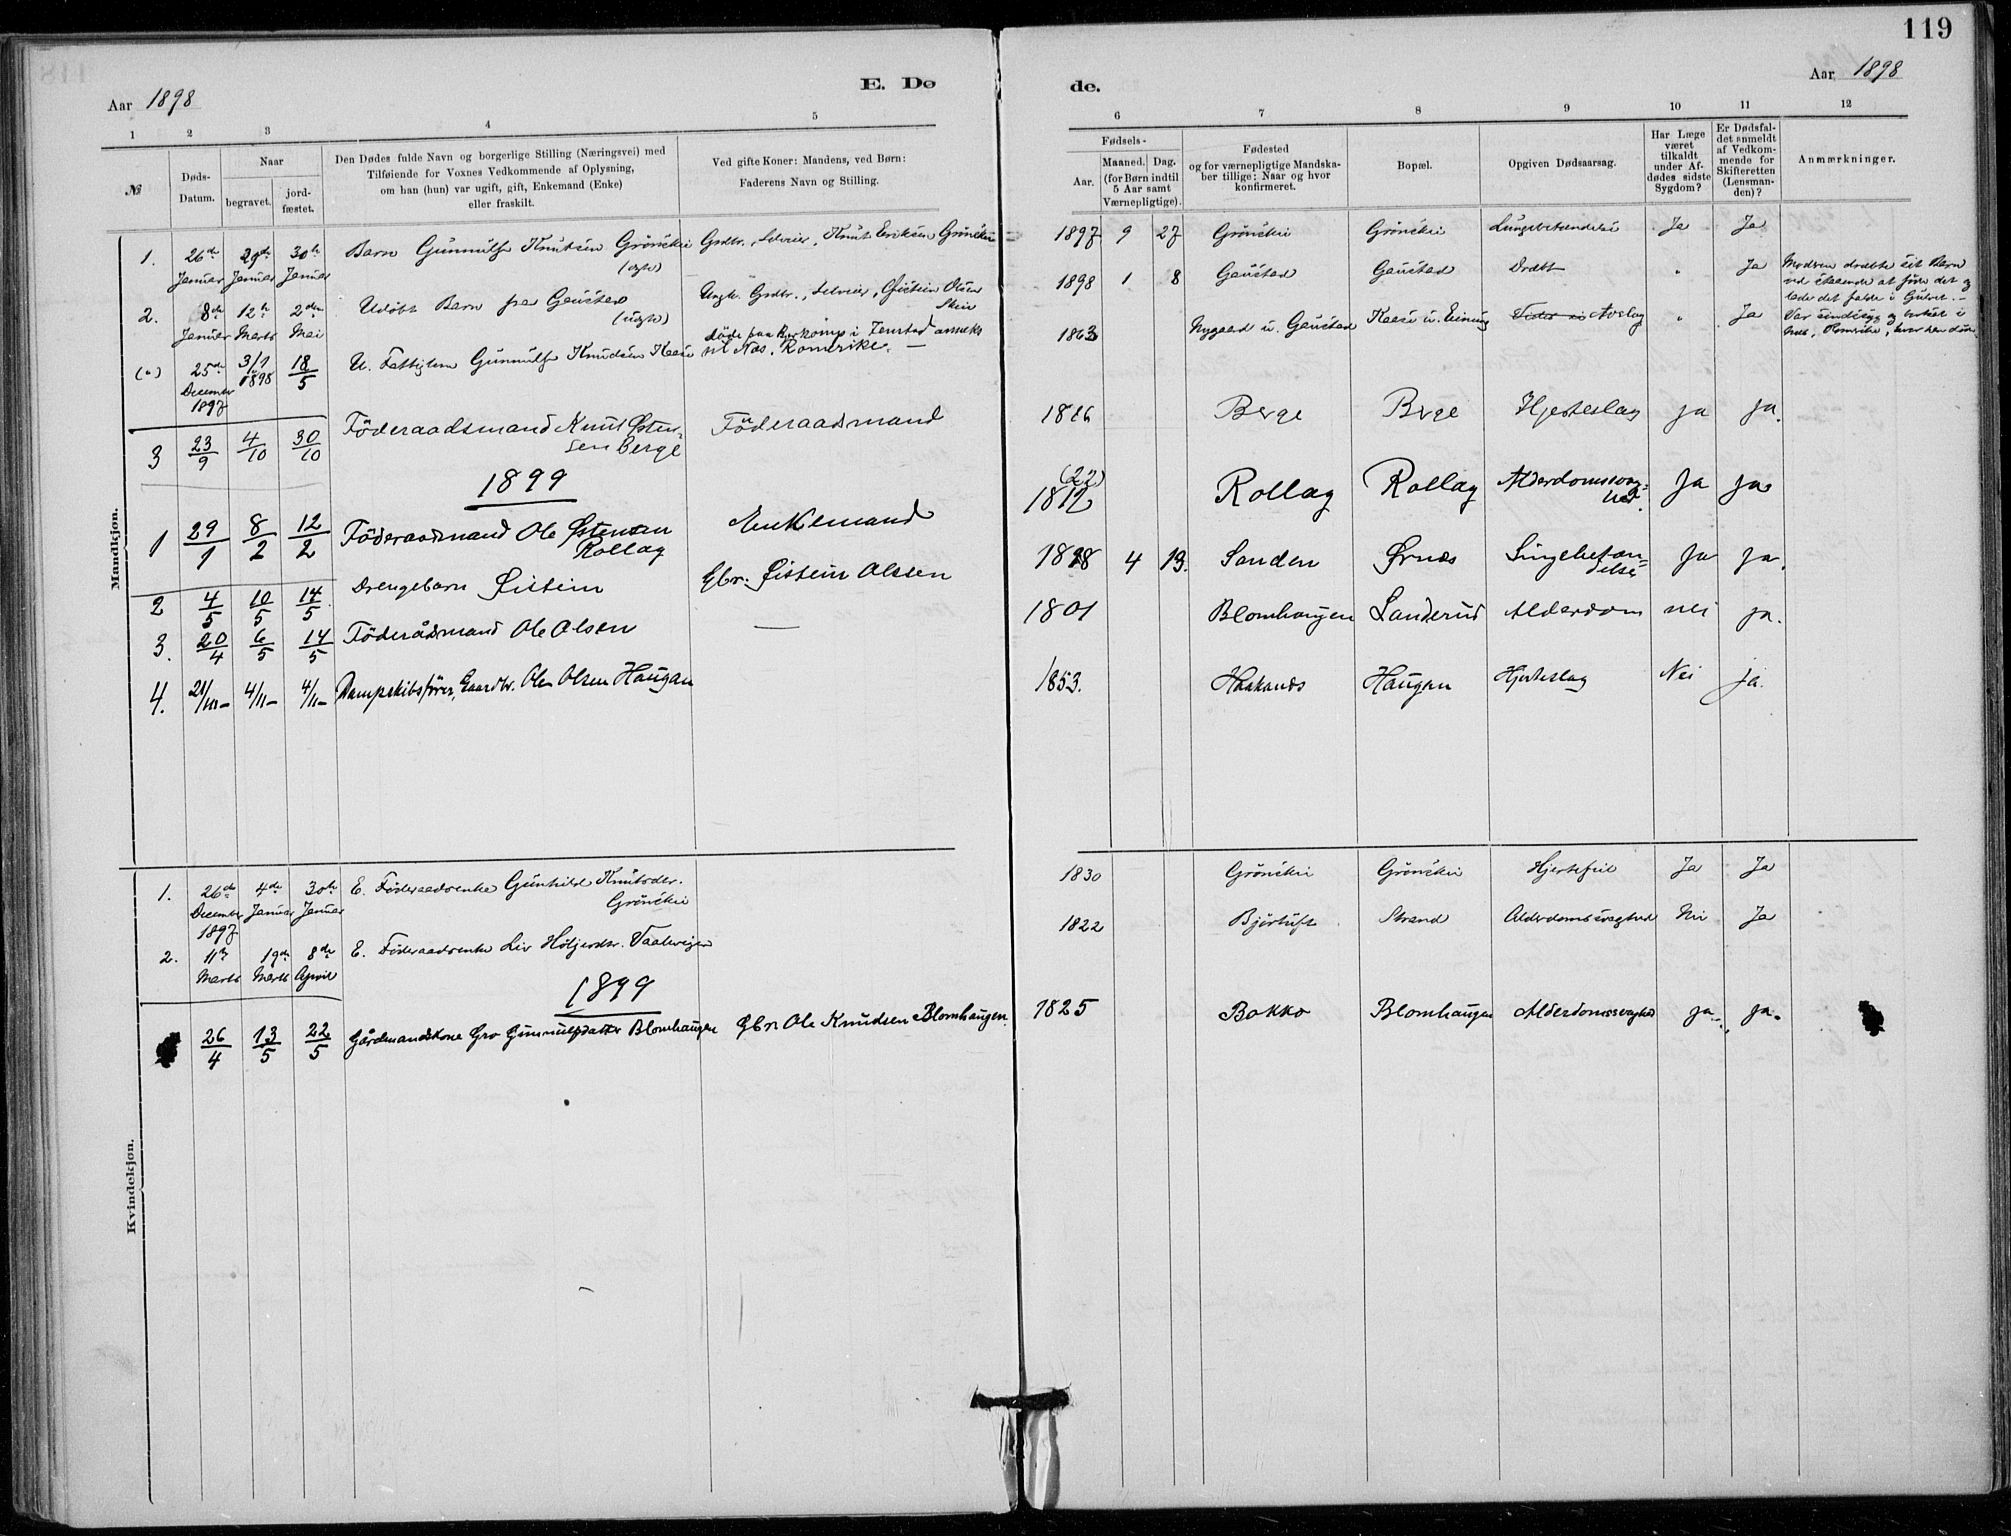 119
Aar 1898
E. Dø
de.
Aar 1898
1 2 3 4 5
6 7 8 9 10 11 12
№
Døds-Datum.
Naar
begravet.
jord-fæstet.
Den Dødes fulde Navn og borgerlige Stilling (Næringsvei) med
Tilføiende for Voxnes Vedkommende af Oplysning,
om han (hun) var ugift, gift, Enkemand (Enke)
eller fraskilt.
Ved gifte Koner: Mandens, ved Børn:
Faderens Navn og Stilling.
Fødsels-
Aar.
Maaned. Dag.
(for Børn indtil
5 Aar samt
Værnepligtige).
Fødested
og for værnepligtige Mandska-
ber tillige: Naar og hvor
konfirmeret.
Bopæl.
Opgiven Dødsaarsag.
Har Læge
været
tilkaldt
under Af-
dødes sidste
Sygdom?
Er Dødsfal-
det anmeldt
af Vedkom-
mende for
Skifteretten
(Lensman-
den)?
Anmærkninger.
Mandkjøn.
1. 26de Januar 29de Januar 30te Januar Barn Gunnulf Knutsen Grönskei (ægte) Grdbr., Selveier, Knut Eriksen Grönskei 1897 9 27 Grönskei Grönskei Lungebetændelse Ja Ja
2. 8de Januar 12te Marts 2den Mai Udöbt Barn fra Gaustad (uægte) Ungk. Grdbr., Selveier, Øistein Olsen Skeie 1898 1 8 Gaustad Gaustad Dræbt " Ja Modren dræbte sit Barn
ved staaende at föde det og
lade det falde i Gulvet. -
(") 25de December 1897 3/1 1898 18/5 U. Fattiglem Gunnulf Knudsen Kaase döde paa Herkomp i Fenstad anneks
til Næs, Romerike. — 1863 Nygaard u. Gaustad Kaase u. Einung Avslag " Ja Var sindssyg og bortsat i
Næs, Romerike, hvor han döde
3 23/9 4/10 30/10 Föderaadsmand Knut Østen-
sen Berge Föderaadsmand 1816 Berge Berge Hjerteslag ja ja.
1899
1 29/1 8/2 12/2 Föderaadmand Ole Østensen
Rollag Enkemand (22) 1812 Rollag Rollag Alderdomssvag-
hed. Ja ja
2 4/5 10/5 14/5 Drengebarn Øistein Gbr: Øistein Olssen 1898 4 13. Sanden Ørnes Lungebetæn-
delse ja ja.
3. 20/4 6/5 14/5 Föderådmand Ole Olsen — 1801 Blomhaugen Landerud Alderdom nei ja.
4. 21/10- 4/11- 4/11- Dampskibsfører, Gaardbr. Ole Olsen Haugan 1853. Haakanæs Haugan Hjerteslag Nei ja.
Kvindekjøn.
1. 26de December 1897 4de Januar 30te Januar E. Föderaadsenke Gunhild Knutsdtr.
Grönskei 1830 Grönskei Grönskei Hjertefeil Ja Ja
2. 11te Marts 19de Marts 8de April E. Föderaadsenke Liv Höljesdtr. Vaaleveien 1822 Björtuft Strand Alderdomssvaghed Nei Ja
1899
26/4 13/5 22/5 Gårdmandskone Gro Gunnulfsdatter Blomhaugen Gbr. Ole Knudsen Blomhaugen. 1825 Bakko Blomhaugen Alderdomssvaghed ja. ja.